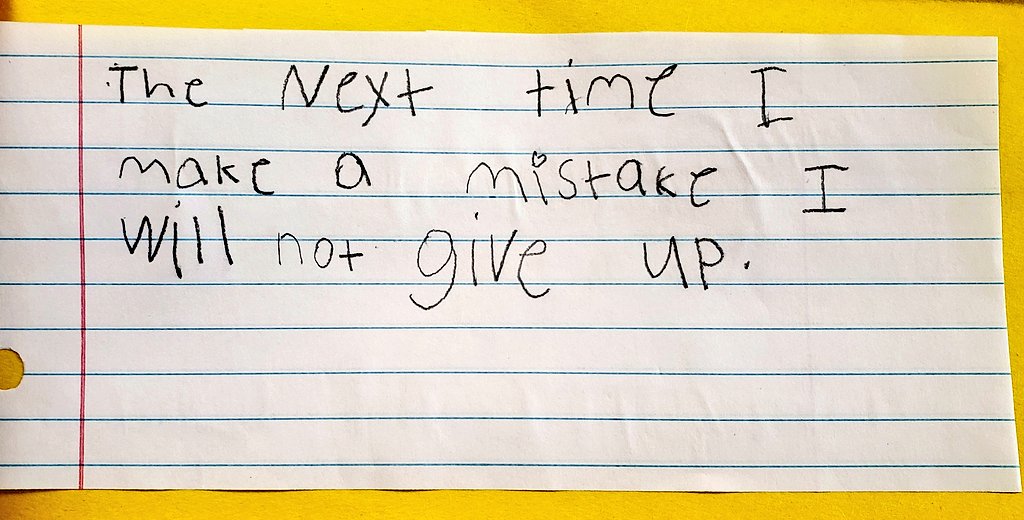 The Next time I
make a mistake I
will not give up.